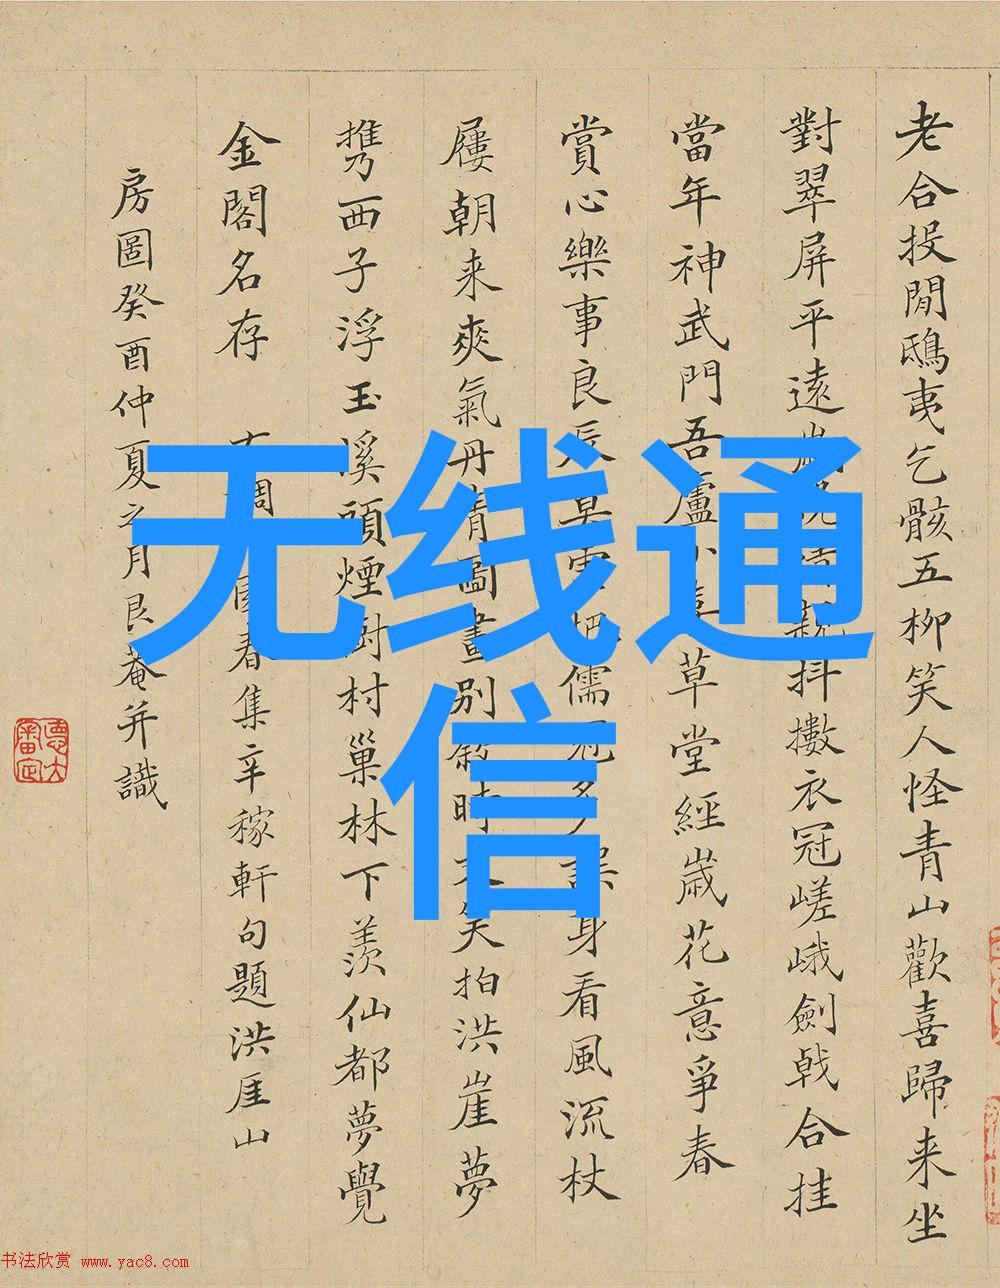 老合投閒鴟夷乞骸五柳笑人怪青山歡喜歸来坐
對翠屏平遠抖擻衣冠嵯峨劍戟合挂
當年神武門吾廬小草堂經歲花意爭春
賞心樂事良辰莫儒冠多誤身看風流杖
屨朝来爽氣丹青圖畫別時笑拍洪崖夢
携西子浮玉溪頭煙樹村巢林下羨仙都夢覺
金閣名存 右調園春集辛稼軒句題洪厓山
房圖癸酉仲夏之月艮菴并識
无线通
信
书法欣赏 www.yac8.com